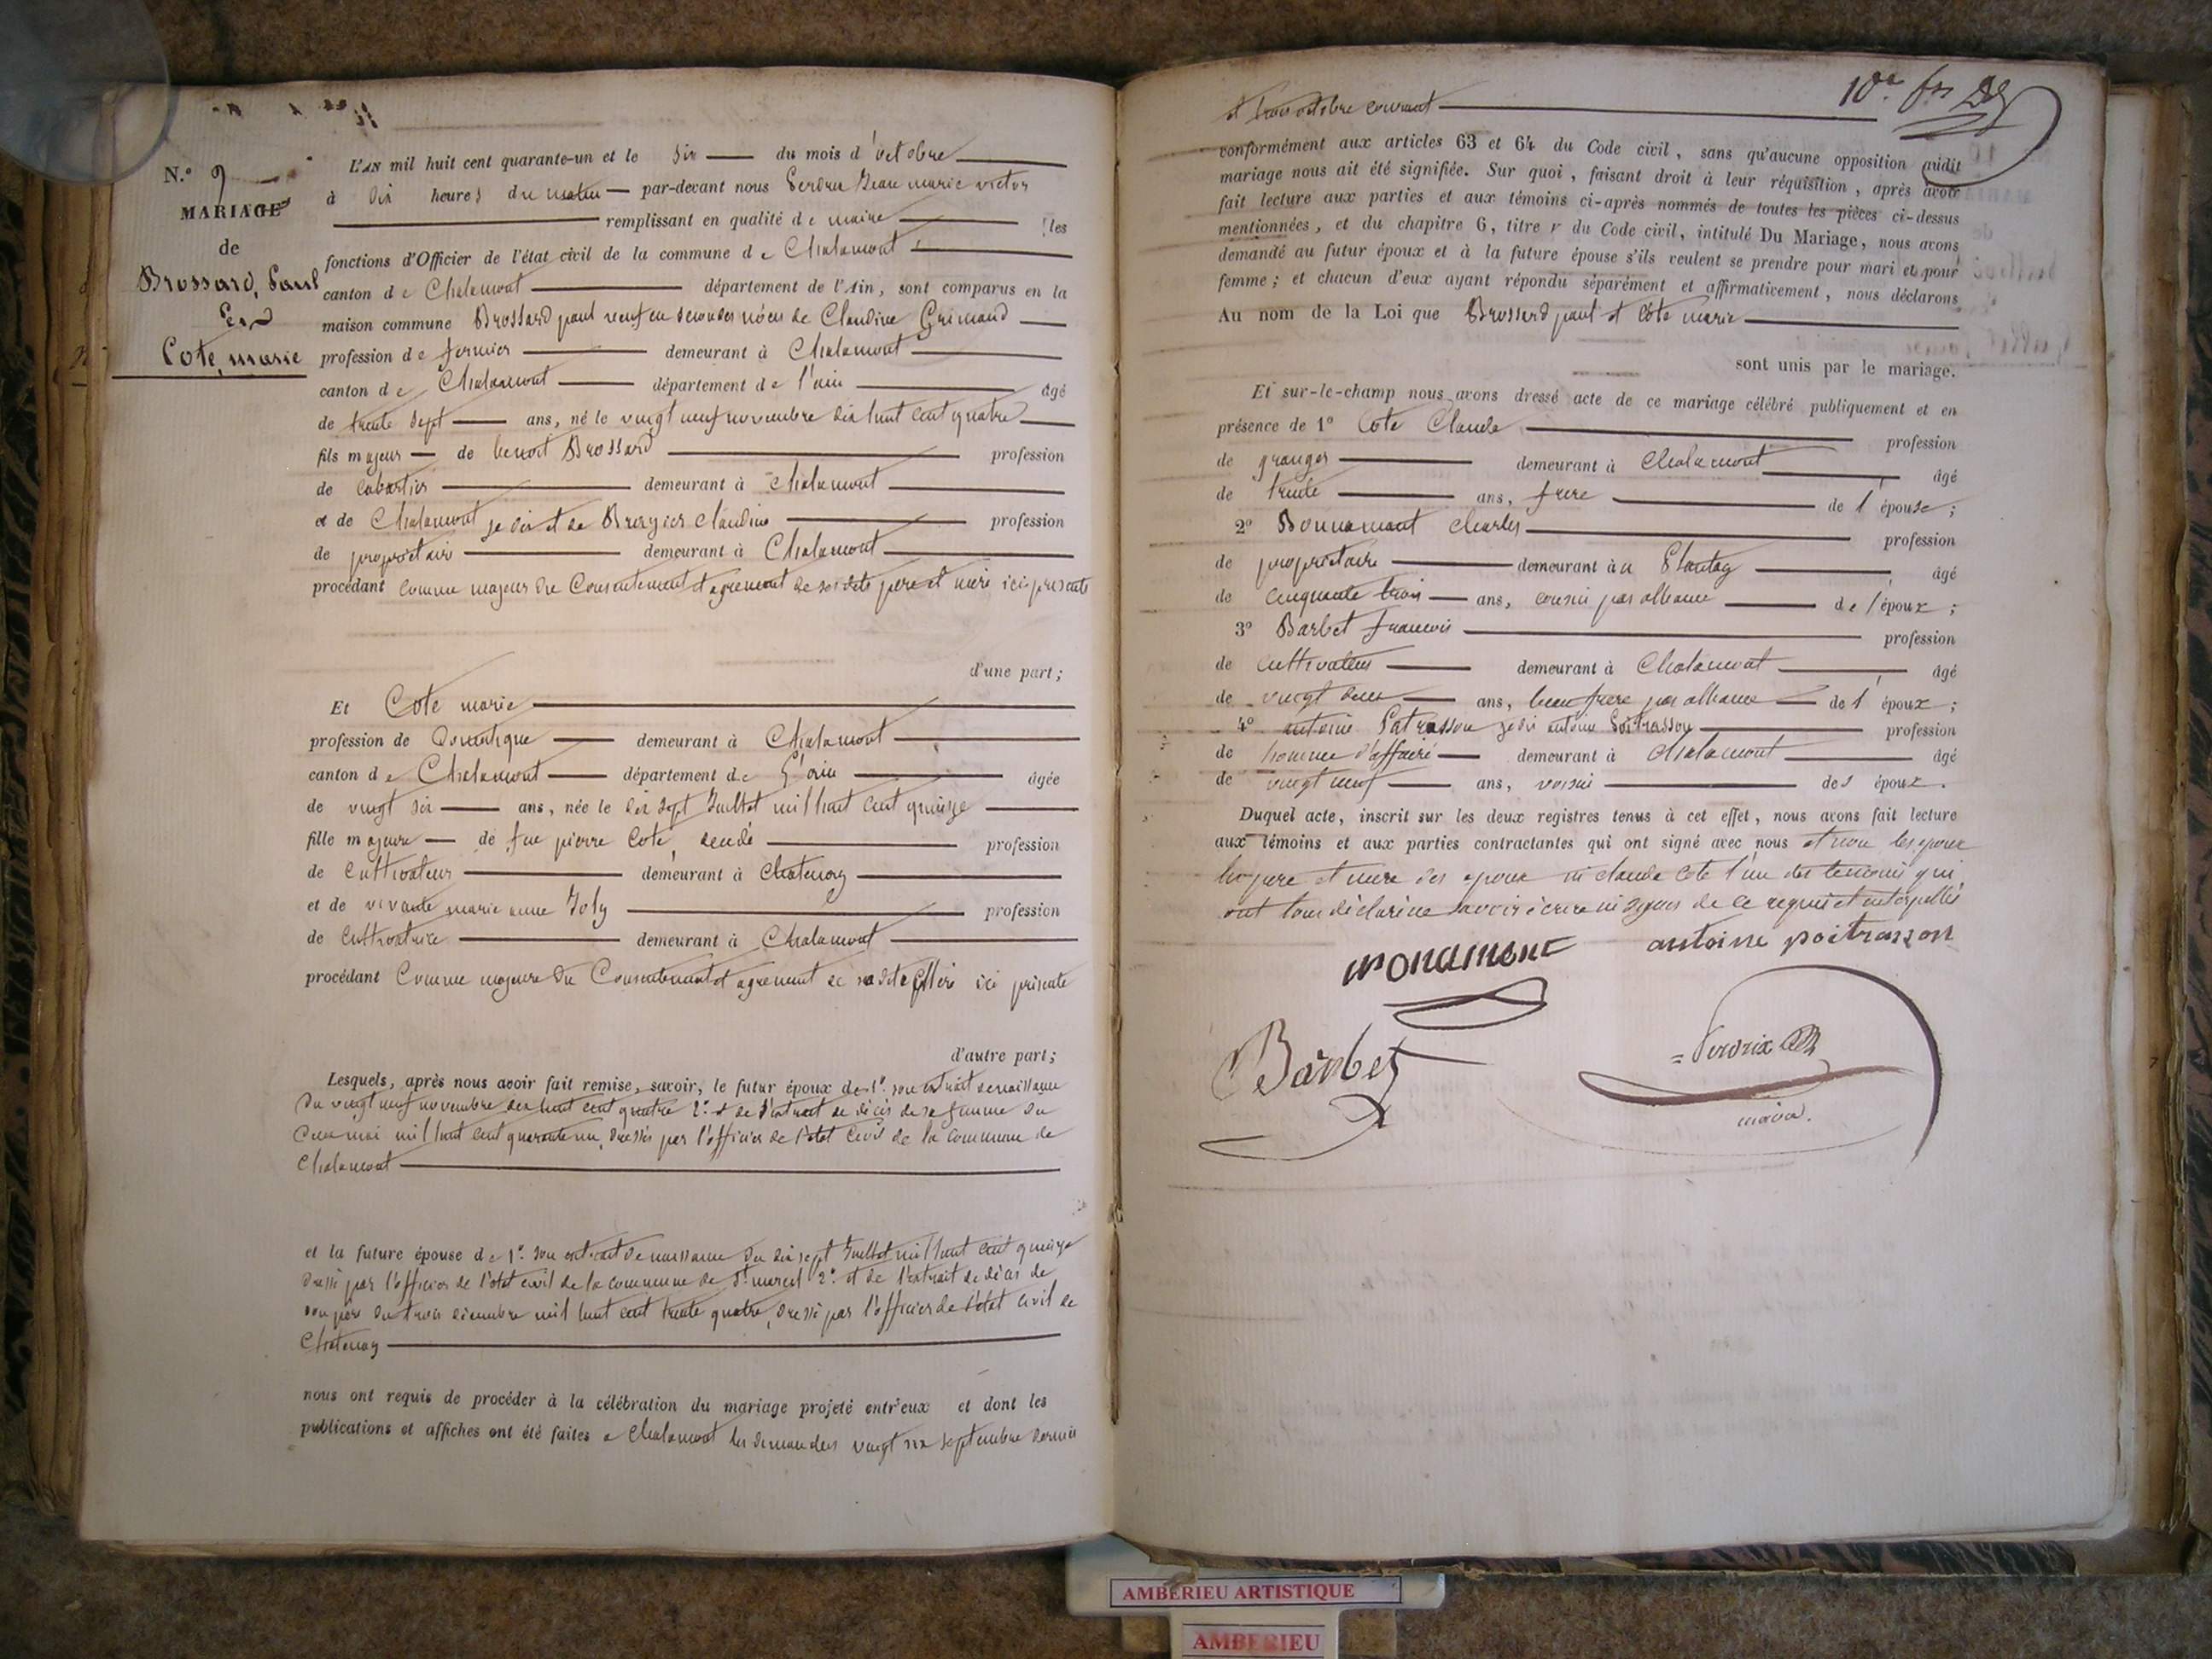 N.º 9
MARIAGE
de
Brossard, Paul
Et
Cote, marie
L'AN mil huit cent quarante-un et le six du mois d'octobre
à dix heures du matin par-devant nous Jean marie victor
remplissant en qualité de maire les
fonctions d'Officier de l'état civil de la commune de Chalamont
canton de Chalamont département de l'Ain, sont comparus en la
maison commune Brossard paul veuf en secondes nôces de Claudine Grimaud
profession de fermier demeurant à Chalamont
canton de Chalamont département de l'ain âgé
de trente sept ans, né le vingt neuf novembre dix huit cent quatre
fils majeur de benoit Brossard profession
de cabartier demeurant à chalamont
et de Chalamont je dis et de Bruyier Claudine profession
de propriétaire demeurant à Chalamont
procédant comme majeur du Consentement et agrément de ses dits père et mère ici présents
d'une part;
Et Cote marie
profession de Domestique demeurant à Chalamont
canton de Chalamont département de l'ain âgée
de vingt six ans, née le dix sept Juillet mil huit cent quinze
fille majeure de feu pierre Cote, décédé profession
de Cultivateur demeurant à Chatenay
et de vivante marie anne Joly profession
de Cultivatrice demeurant à Chalamont
procédant Comme majeure du Consentement et agrément de sa dite Mère ici présente
d'autre part;
Lesquels, après nous avoir fait remise, savoir, le futur époux de 1º. son extrait de naissance
du vingt neuf novembre dix huit cent quatre 2º. et de l'extrait de décès de sa femme du
mai mil huit cent quarante un, dressés par l'officier de l'état Civil de la Commune de
Chalamont
et la future épouse de 1º. son extrait de naissance du dix sept Juillet mil huit cent quinze
dressé par l'officier de l'état civil de la commune de St marcel 2º. et de l'extrait de décès de
son père du trois décembre mil huit cent trente quatre, dressé par l'officier de l'état civil de
Chatenay
nous ont requis de procéder à la célébration du mariage projeté entr'eux et dont les
publications et affiches ont été faites à Chalamont les dimanches vingt six septembre dernier
et trois octobre courant
10e
conformément aux articles 63 et 64 du Code civil, sans qu'aucune opposition audit
mariage nous ait été signifiée. Sur quoi, faisant droit à leur réquisition, après avoir
fait lecture aux parties et aux témoins ci-après nommés de toutes les pièces ci-dessus
mentionnées, et du chapitre 6, titre v du Code civil, intitulé Du Mariage, nous avons
demandé au futur époux et à la future épouse s'ils veulent se prendre pour mari et pour
femme; et chacun d'eux ayant répondu séparément et affirmativement, nous déclarons
Au nom de la Loi que Brossard paul et Cote marie
sont unis par le mariage.
Et sur-le-champ nous avons dressé acte de ce mariage célébré publiquement et en
présence de 1º Cote Claude profession
de granger demeurant à Chalamont âgé
de trente ans, frère de l'épouse;
2º Bonnamant charles profession
de propriétaire demeurant au Plantay âgé
de cinquante trois ans, cousin par alliance de l'époux;
3º Barbet françois profession
de cultivateur demeurant à Chalamont âgé
de vingt deux ans, beau frère par alliance de l'époux;
4º antoine Patrasson je dis antoine Poitrasson profession
de homme d'affaire demeurant à chalamont âgé
de vingt neuf ans, voisin des époux.
Duquel acte, inscrit sur les deux registres tenus à cet effet, nous avons fait lecture
aux témoins et aux parties contractantes qui ont signé avec nous et non les époux
les père et mère des époux ni claude Cote l'un des témoins qui
ont tous déclaré ne savoir écrire ni signer de ce requis et interpellés
antoine poitrasson
Barbet
maire.
AMBERIEU ARTISTIQUE
AMBERIEU